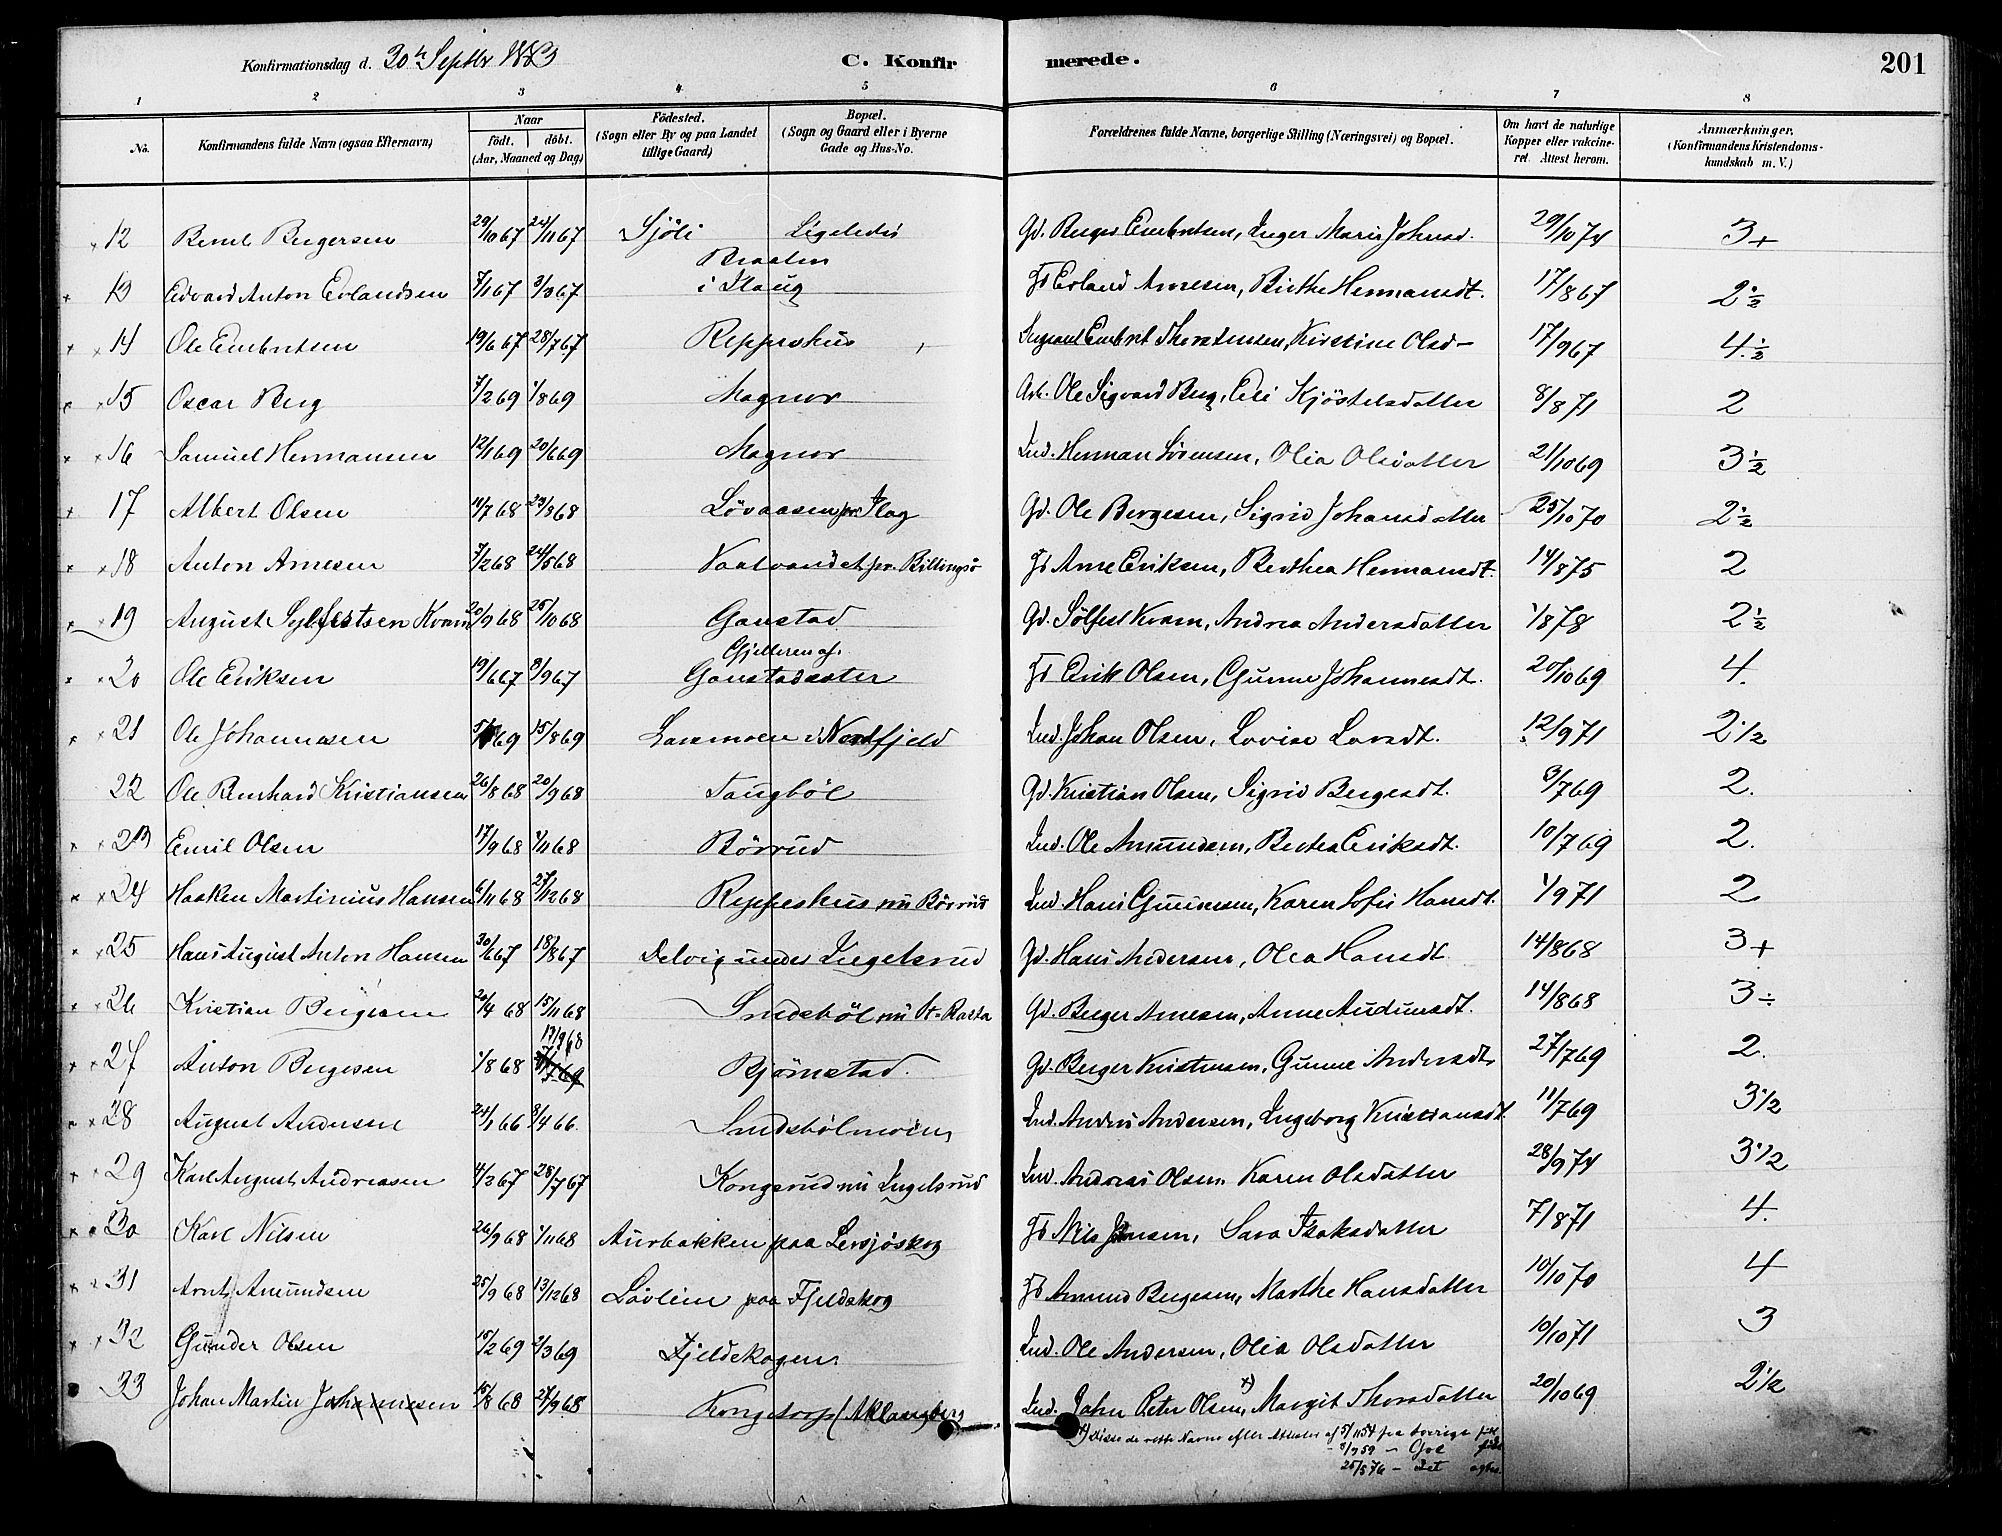 Konfirmationsdag d. 30te Septbr 1883 C. Konfirmerede. 201
1 2 3 4 5 6 7 8
No. Konfirmandens fulde Navn (ogsaa Efternavn) Naar født. døbt. (Aar, Maaned og Dag) Fødested. (Sogn eller By og paa Landet tillige Gaard) Bopæl. (Sogn og Gaard eller i Byerne Gade og Hus-No. Forældrenes fulde Navne, borgerlige Stilling (Næringsvei) og Bopæl. Om havt de naturlige Kopper eller vakcineret. Attest herom. Anmærkninger. (Konfirmandens Kristendomskundskab m. V.)
12 Bernt Bergersen 29/10 67 24/11 67 Sjöli Ligeledes Gd. Berger Embretsen, Inger Marie Johnsd. 29/10 74 3+
13 Edvard Anton Erlandsen 7/1 67 3/3 67 Braaten i Skaug Fs Erland Arnesen, Birthe Hermansdt. 17/8 67 2½
14 Ole Embretsen 19/6 67 28/7 67 Reppeshus Sergeant Embret Thorstensen, Kirstine Olsd- 17/9 67 4.½
15 Oscar Berg 7/2 69 1/8 69 Magnor Arb. Ole Sigvard Berg, Eli Kjöstelsdatter 8/8 71 2
16 Samuel Hermansen 12/1 69 20/6 69 Magnor Ind. Herman Sörensen, Olia Olsdatter 21/10 69 3½
17 Albert Olsen 11/7 68 23/8 68 Lövaasen pr. Skog Gd. Ole Bergesen, Sigrid Johansdatter 25/10 70 2½
18 Anton Arnesen 7/2 68 24/5 68 Vaalvandet pr. Billingsö Fs Arne Eriksen, Berthea Hermansdt. 14/8 75 2
19 August Sylfestsen Kvam 20/9 68 25/10 68 Gaustad Gd. Sölfest Kvam, Andrea Andersdatter 1/8 78 2½
20 Ole Eriksen 19/6 67 8/9 67 Gjetteren af. Gaustadsæter Fs Erik Olsen, Gunne Johannesdt. 20/10 69 4.
21 Ole Johannesen 5/7 69 15/8 69 Larsmoen i Nordfjeld Ind. Johan Olsen, Lovise Larsdt. 12/9 71 2½
22 Ole Bernhard Kristiansen 26/8 68 20/9 68 Taugböl Gd. Kristian Olsen, Sigrid Bergesdt. 3/7 69 2.
23 Emil Olsen 17/9 68 1/11 68 Börrud Ind. Ole Amundsen, Berthea Eriksdt. 10/7 69 2.
24 Haaken Martinius Hansen 6/11 68 27/12 68 Reppeshus nu Börrud Ind. Hans Gunnesen, Karen Sofie Hansdt. 1/9 71 2
25 Hans August Anton Hansen 30/6 67 18/8 67 Delvig under Ingelsrud Gd. Hans Andersen, Olea Hansdt 14/8 68 3+
26 Kristian Bergesen 20/4 68 15/11 68 Sindsböl nu St. Rasta Gd. Berger Arnesen, Anne Audunsdt. 14/8 68 3÷
27 Anton Bergesen 1/8 68 13/9 68 Björnstad. Gd. Berger Kristensen, Gunne Andersdt. 27/7 69 2.
28 August Andersen 24/1 66 8/4 66. Sindsbölmoen Ind. Anders Andersen, Ingeborg Kristiansdt. 11/7 69 3½
29 Karl August Andreasen 4/3 67 28/7 67 Kongsrud nu Ingelsrud Ind. Andreas Olsen, Karen Olsdatter 28/9 74 3½
30 Karl Nilsen 26/9 68 1/11 68 Aurbakken paa Lersjöskog Fs Nils Jensen, Sara Isaksdatter 7/8 71 4.
31 Arnt Amundsen 25/9 68 13/12 68 Lövlien paa Fjeldskog Fs Amund Bergesen, Marthe Hansdatter 10/10 70 4
32 Gunder Olsen 15/2 69 2/3 69 Fjeldskogen Ind. Ole Andersen, Olia Olsdatter 10/10 71 3
33 Johan Martin Johannesen 15/8 68 27/9 68 Kongstorp (Aklangberg Ind. John Peter Olsen, +) Margit Thorsdatter 20/10 69 2½
+) Disse de rette Navne efter Attester af 5/11 54 fra Sverige
8/7 59 - Gos
25/5 76 - Det